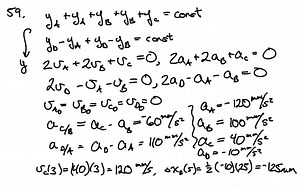 59. y_A + y_A + y_B + y_B + y_C = const
y_D - y_A + y_D - y_B = const
y
2υ_A + 2υ_B + υ_C = 0, 2a_A + 2a_B + a_C = 0
2υ_D - υ_A - υ_B = 0, 2a_D - a_A - a_B = 0
υ_A0 = υ_B0 = υ_C0 = υ_D0 = 0
a_C/B = a_C - a_B = -60 mm/s²
a_D/A = a_D - a_A = 110 mm/s²
a_A = -120 mm/s²
a_B = 100 mm/s²
a_C = 40 mm/s²
a_D = -10 mm/s²
υ_C(3) = (40)(3) = 120 mm/s, Δx_D(5) = ½(-10)(25) = -125 mm